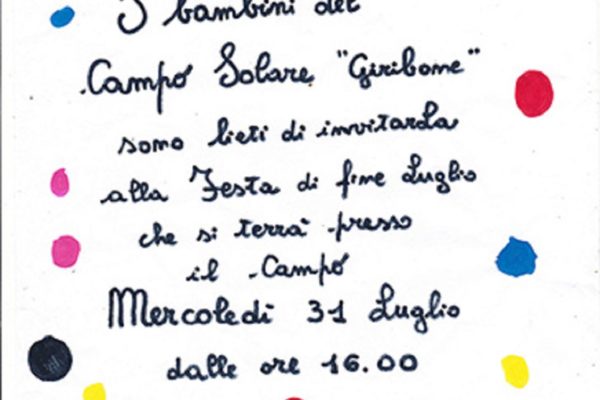 I bambini del
Campo Solare "Giribone"
sono lieti di invitarla
alla Festa di fine Luglio
che si terrà presso
il Campo
Mercoledì 31 Luglio
dalle ore 16.00